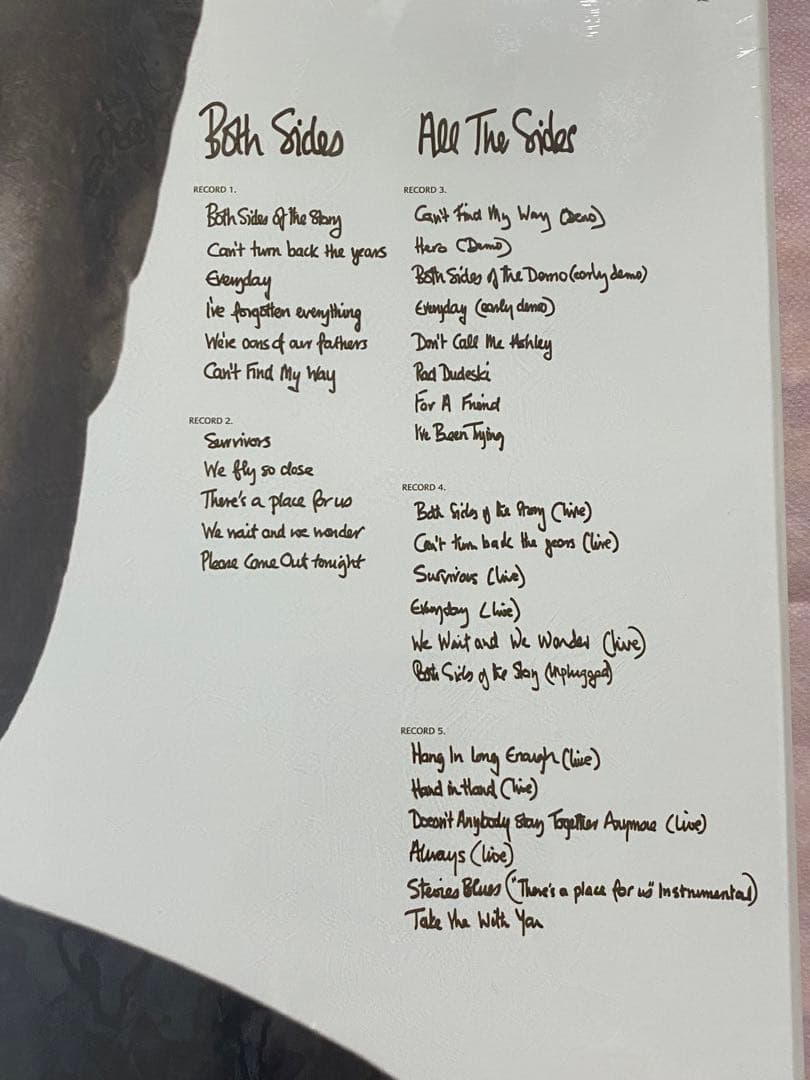 Both Sides
RECORD 1.
Both Sides Of the Story
Can't turn back the years
Everyday
I've forgotten everything
We're sons of our fathers
Can't Find My Way
RECORD 2.
Survivors
We fly so close
There's a place for us
We wait and we wonder
Please Come Out tonight
All The Sides
RECORD 3.
Can't Find My Way (Demo)
Hero (Demo)
Both Sides of The Demo (early demo)
Everyday (early demo)
Don't Call Me Ashley
Rad Dudeski
For A Friend
I've Been Trying
RECORD 4.
Both Sides of the Story (live)
Can't turn back the years (live)
Survivors (live)
Everyday (live)
We Wait and We Wonder (live)
Both Sides of the Story (Unplugged)
RECORD 5.
Hang In Long Enough (live)
Hand in Hand (live)
Doesn't Anybody Stay Together Anymore (live)
Always (live)
Stevies Blues ("There's a place for us" Instrumental)
Take Me With You